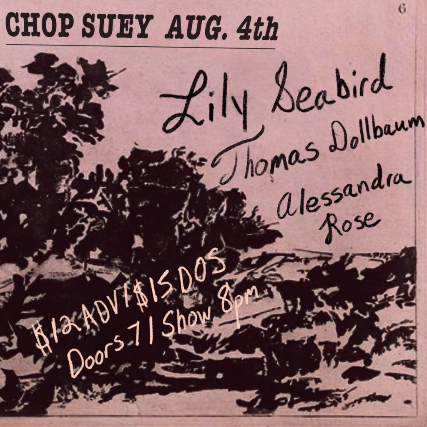 6
CHOP SUEY AUG. 4th
Lily Seabird
Thomas Dollbaum
Alessandra
Rose
$12 ADV / $15 DOS
Doors 7 / Show 8pm